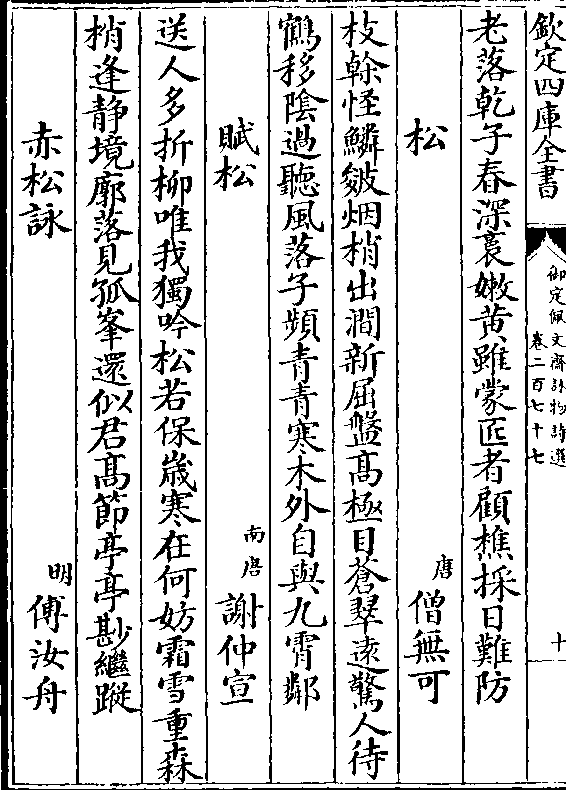 欽定四庫全書
御定佩文齋詠物詩選
卷二百七十七
十
老落乾子春深裛嫩黃雖蒙匠者顧樵採日難防
松
唐 僧無可
枝榦怪鱗皴烟梢出澗新屈盤高極目蒼翠遠驚人待
鶴移陰過聽風落子頻青青寒木外自與九霄鄰
賦松
南唐 謝仲宣
送人多折柳唯我獨吟松若保歲寒在何妨霜雪重森
梢逢静境廓落見孤峯還似君高節亭亭尠繼蹤
赤松詠
明 傅汝舟